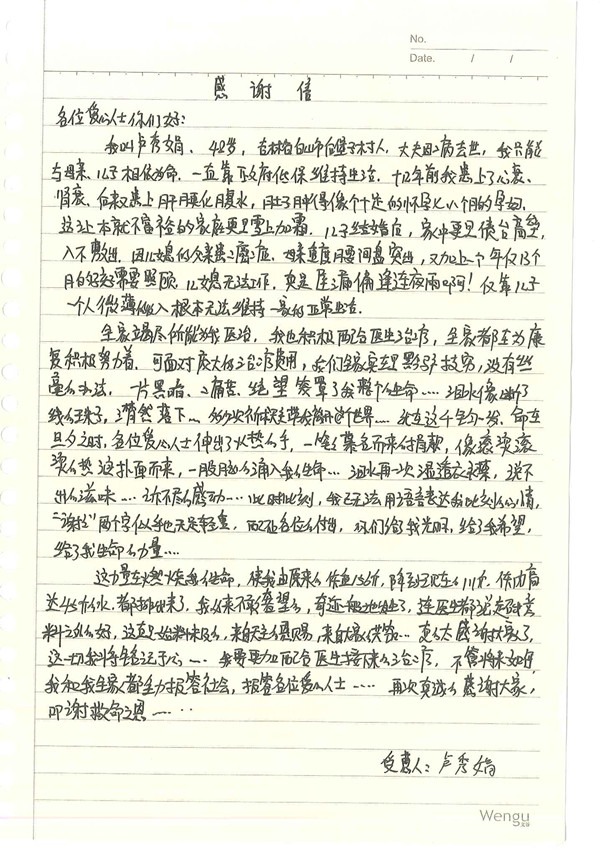 No.
Date. / /
感谢信
各位爱心人士你们好:
我叫卢秀娟、42岁,吉林省白山市 村人,丈夫因病去世,我只能
与母亲、儿子相依为命.一直靠政府低保维持生活.十几年前我患上了心衰、
肾衰、后来又患上肝硬化腹水,肚子肿得像个十足的怀孕八个月的孕妇.
这让本就不富裕的家庭更是雪上加霜.儿子结婚后,家中更是债台高垒,
入不敷出.因儿媳的父亲患癌症.母亲重度腰间盘突出,又加上一个年仅13个
月的孩子需要照顾.儿媳无法工作.真是屋漏偏逢连夜雨啊!仅靠儿子
一个人微薄的收入根本无法维持一家的正常生活.
全家竭尽所能为我医治,我也积极配合医生治疗,全家都在为康
复积极努力着.可面对庞大的治疗费用,我们全家实在是黔驴技穷,没有丝
毫的办法.一片黑暗、痛苦、绝望笼罩了我整个生命……泪水像断了
线的珠子,潸然落下…… 离开这个世界……就在这千钧一发、命在
旦夕之时,各位爱心人士伸出了火热的手,一笔笔慕名而来的捐款,像滚滚
热 这扑面而来,一股股的涌入我的生命……泪水再一次湿透衣襟,说不
出的滋味……诉不尽的感动……此时此刻,我已无法用语言表达我此刻的心情,
“谢谢”两个字似乎也无足轻重,
给了我生命的力量……
这力量在燃烧我的生命,使我由原来的体重 斤,降到现在的 斤.体内高
达45斤的水.都排出来了,我从来不敢奢望的,奇迹般地出现了,连医生都说 意
料之外的好,这真是始料未及的,来自天的恩赐,来自大家的 ……太感谢大家了,
这一切我将铭记于心……我要更加配合医生接下来的治疗,不管将来如何
我和我全家都全力报答社会,报答各位爱心人士……再次真诚的感谢大家,
叩谢救命之恩……
受惠人:卢秀娟
Wengu